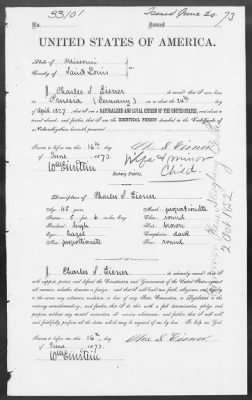 33101 Issued June 20. 73
No. Issued
UNITED STATES OF AMERICA.
State of Missouri
County of Saint Louis
I, Charles S. Eisner do swear that I was born
in Prussia (Germany) on the 24th day
of April 1827, that I am a NATURALIZED AND LOYAL CITIZEN OF THE UNITED STATES, and about to
travel abroad; and further that I am the IDENTICAL PERSON described in the Certificate of
Naturalization herewith presented.
Sworn to before me, this 16th day
of June 1873.
Wm Einstein
Notary Public.
Chs. S. Eisner
Wife & minor
Child.
2 Oct 1852
Description of Charles S. Eisner
Age: 45 years
Mouth: proportionate
Stature: 5 feet 6 inches Eng.
Chin: round
Forehead: high
Hair: brown
Eyes: hazel
Complexion: dark
Nose: proportionate
Face: round
I, Charles S. Eisner do solemnly swear that I
will support, protect and defend the Constitution and Government of the United States against
all enemies, whether domestic or foreign; and that I will bear true faith, allegiance and loyalty
to the same, any ordinance, resolution or law of any State, Convention or Legislature to the
contrary notwithstanding; and further, that I do this with a full determination, pledge and
purpose, without any mental reservation or evasion whatsoever; and further, that I will well
and faithfully perform all the duties which may be required of me by law. So help me God.
Sworn to before me, this 16th day
of June 1873.
Wm Einstein
Chs. S. Eisner